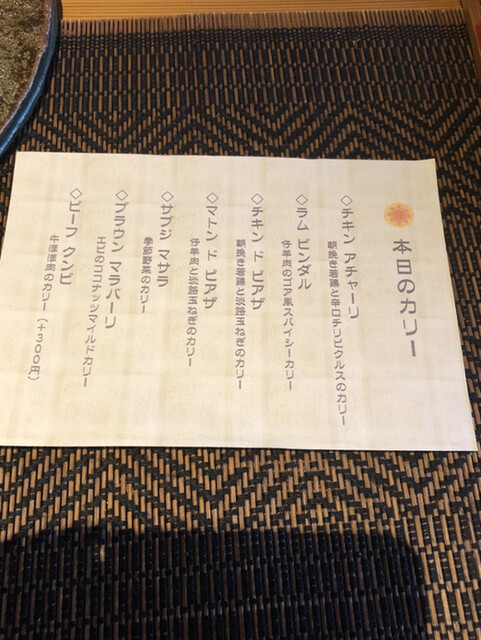 本日のカリー
◇チキン アチャーリ
朝挽き若鶏と辛口チリピクルスのカリー
◇ラム ビンダル
仔羊肉のゴア風スパイシーカリー
◇チキン ド ピアザ
朝挽き若鶏と淡路玉ねぎのカリー
◇マトン ド ピアザ
仔羊肉と淡路玉ねぎのカリー
◇サブジ マサラ
季節野菜のカリー
◇プラウン マラバーリ
エビのココナッツマイルドカリー
◇ビーフ クンビ
のカリー（＋300円）